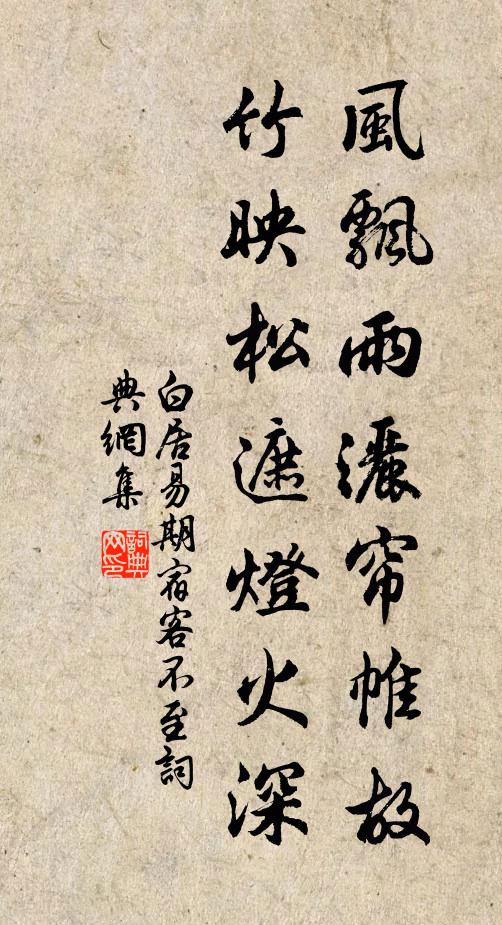 風飄雨灑帘帷故
竹映松遮燈火深
白居易期宿客不至詞
典網集
詞典網印